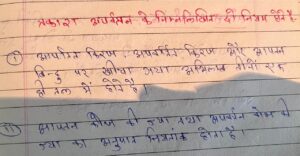 प्रकाश अपवर्तन के निम्नलिखित दो नियम होते हैं
① आपतित किरण अपवर्तित किरण और आपतन
बिन्दु पर खींचा गया अभिलम्ब तीनों एक
ही तल में होते हैं।
ii) आपतन कोण की ज्या तथा अपवर्तन कोण की
ज्या का अनुपात नियतांक होता है।